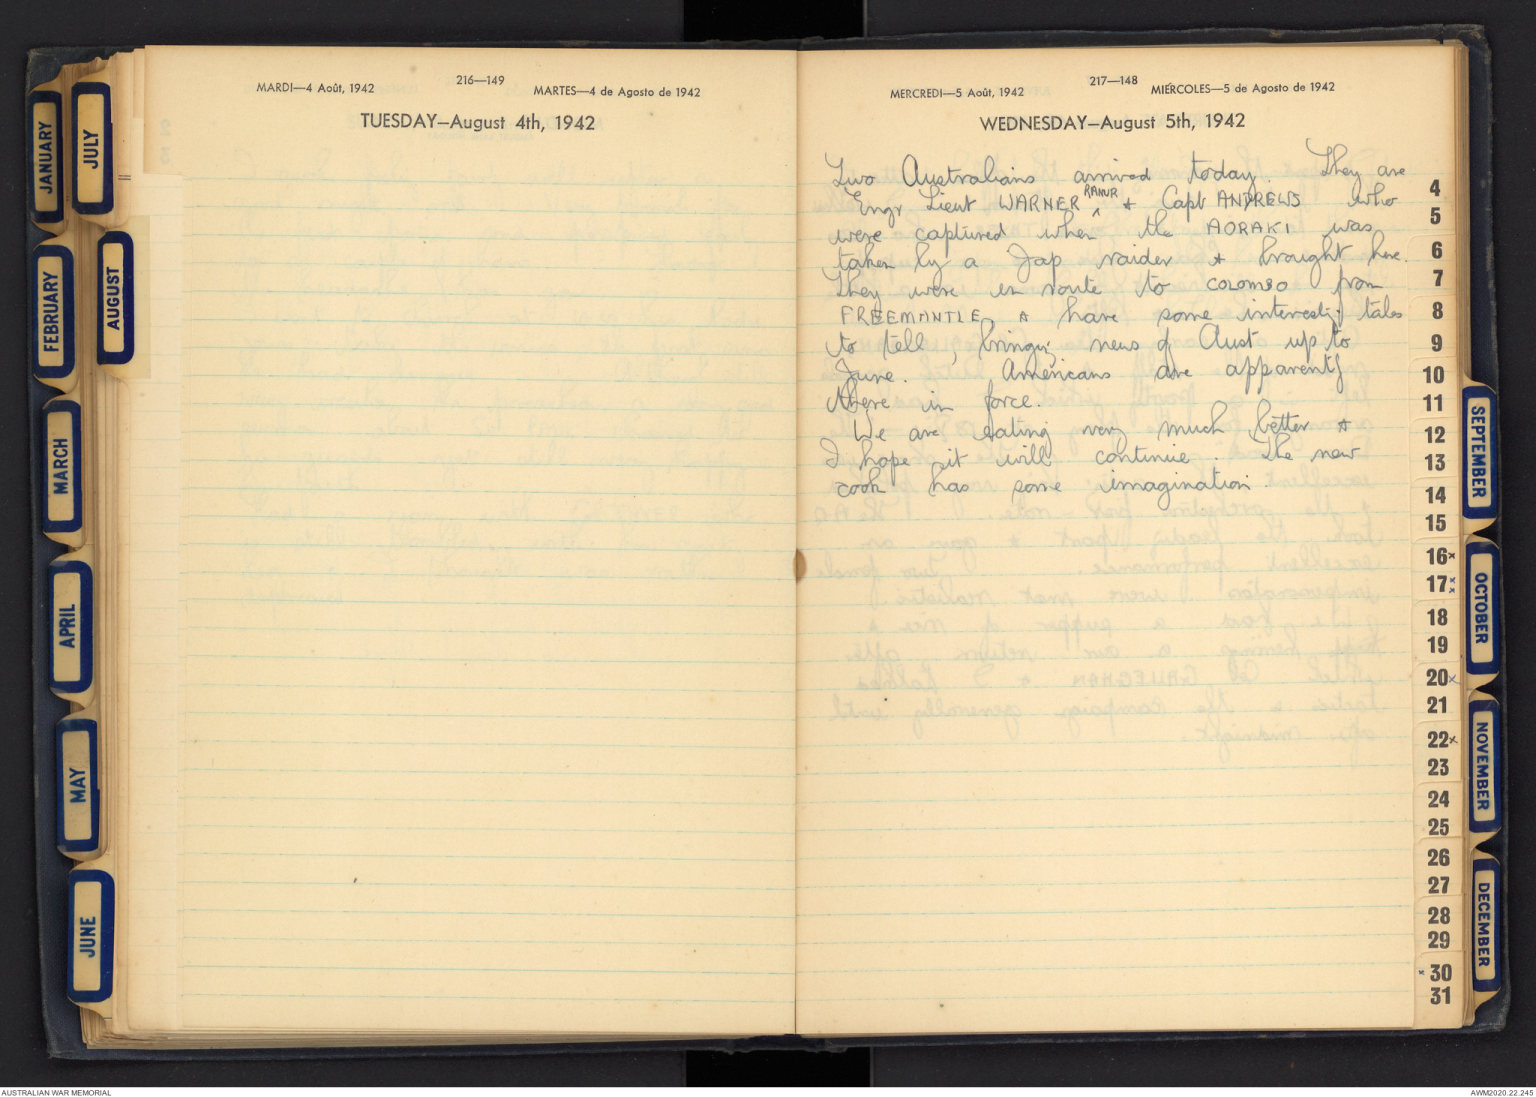 216—149
MARDI—4 Août, 1942
MARTES—4 de Agosto de 1942
TUESDAY—August 4th, 1942
217—148
MERCREDI—5 Août, 1942
MIÉRCOLES—5 de Agosto de 1942
WEDNESDAY—August 5th, 1942
Two Australians arrived today. They are
Engr Lieut WARNER RANR & Capt ANDREWS who
were captured when the AORAKI was
taken by a Jap raider & brought here.
They were en route to COLOMBO from
FREEMANTLE & have some interesting tales
to tell, bringing news of Aust up to
June. Americans are apparently
there in force.
We are eating very much better &
I hope it will continue. The new
cook has some imagination.
JANUARY
FEBRUARY
MARCH
APRIL
MAY
JUNE
JULY
AUGUST
4
5
6
7
8
9
10
11
12
13
14
15
16x
17
18
19
20x
21
22x
23
24
25
26
27
28
29
x 30
31
SEPTEMBER
OCTOBER
NOVEMBER
DECEMBER
AUSTRALIAN WAR MEMORIAL
AWM2020.22.245